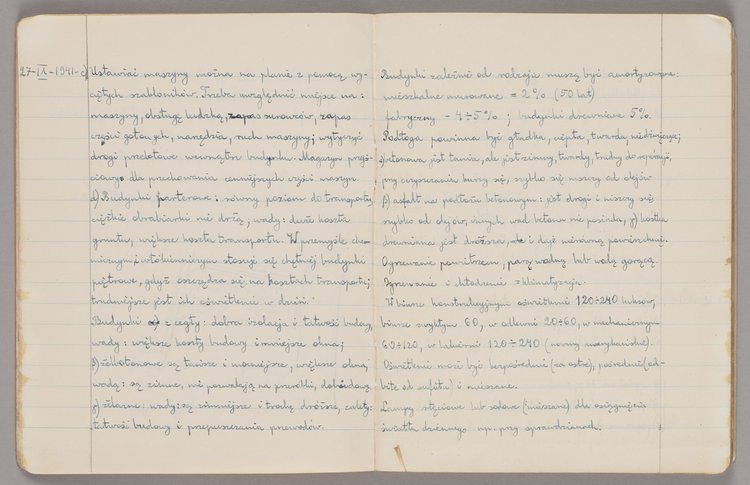 27-IX-1941-c) Ustawiać maszyny można na planie z pomocą wy-
ciętych szabloników. Trzeba uwzględnić miejsce na:
maszyny, obsługę ludzką, zapas surowców, zapas
części gotowych, narzędzia, ruch maszyny; wytyczyć
drogi przelotowe wewnątrz budynku. Magazyn przej-
ściowy dla przechowania cenniejszych części maszyn.
d) Budynki parterowe: równy poziom do transportu,
ciężkie obrabiarki nie drżą, wady: duże koszta
gruntu, większe koszta transportu. W przemyśle che-
micznym i włókienniczym stosuje się chętniej budynki
piętrowe, gdyż oszczędza się na kosztach transportu;
trudniejsze jest ich oświetlenie w dzień.
Budynki z cegły: dobra izolacja i łatwość budowy,
wady: większe koszty budowy i mniejsze okna;
β) żelbetonowe są tańsze i mocniejsze, większe okna,
wady: są zimne, nie pozwalają na przeróbki, dobudowy
γ) żelazne: wady: są zimniejsze i trochę droższe, zalety:
łatwość budowy i przepuszczania przewodów.
Budynki zależnie od rodzaju muszą być amortyzowane:
mieszkalne murowane = 2% (50 lat)
fabryczny - 4÷5%; budynki drewniane 5%.
Podłoga powinna być gładka, ciepła, twarda, nie dźwięcząca;
betonowa jest tania, ale jest zimna, twarda, trudna do reperacji,
przy czyszczeniu kurzy się, szybko się niszczy od olejów
β) asfalt na podłożu betonowym: jest drogi i niszczy się
szybko od olejów, innych wad betonu nie posiada, γ) kostka
drewniana jest droższa, i daje nierówną powierzchnię.
Ogrzewanie powietrzem, parą wodną lub wodą gorącą
Ogrzewanie i chłodzenie = klimatyzacja.
W biurze konstrukcyjnym oświetlenie 120÷240 luksów,
biurze zwykłym 60, w odlewni 20÷60, w mechanicznym
60÷120, w 120÷240 (normy amerykańskie).
Oświetlenie może być bezpośrednie (za ostre), pośrednie (od-
bite od sufitu) i mieszane.
Lampy rtęciowe lub sodowe (mieszane) dla osiągnięcia
światła dziennego np. przy sprawdzianach.